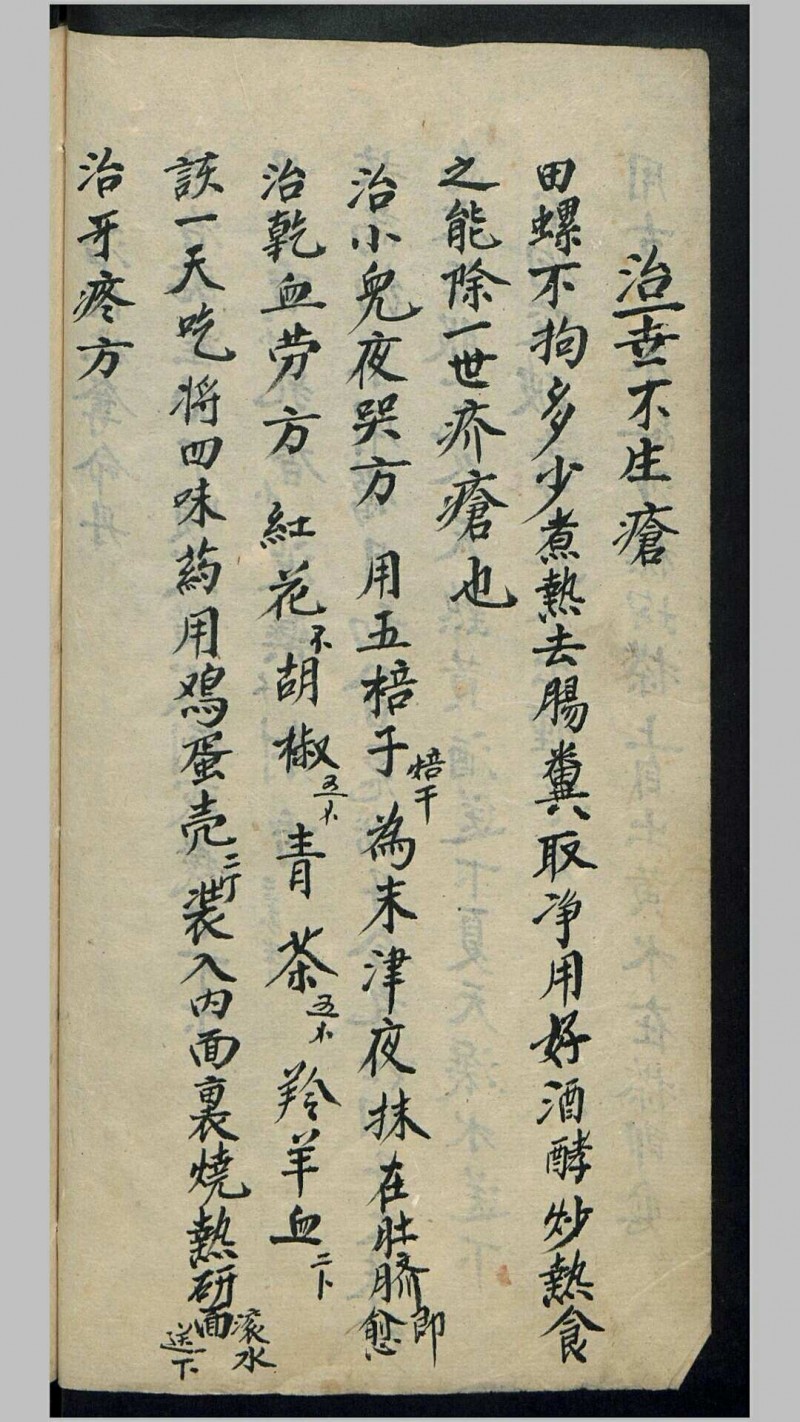 治一世不生瘡
田螺不拘多少煮熱去腸糞取净用好酒酵炒熱食
之能除一世疥瘡也
治小兒夜哭方 用五棓子焙干為末津夜抹在肚臍即愈
治乾血劳方 紅花 胡椒 青茶 羚羊血
該一天吃将四味药用鸡蛋壳二个装入内面裏烧熱研面滚水送下
治牙疼方